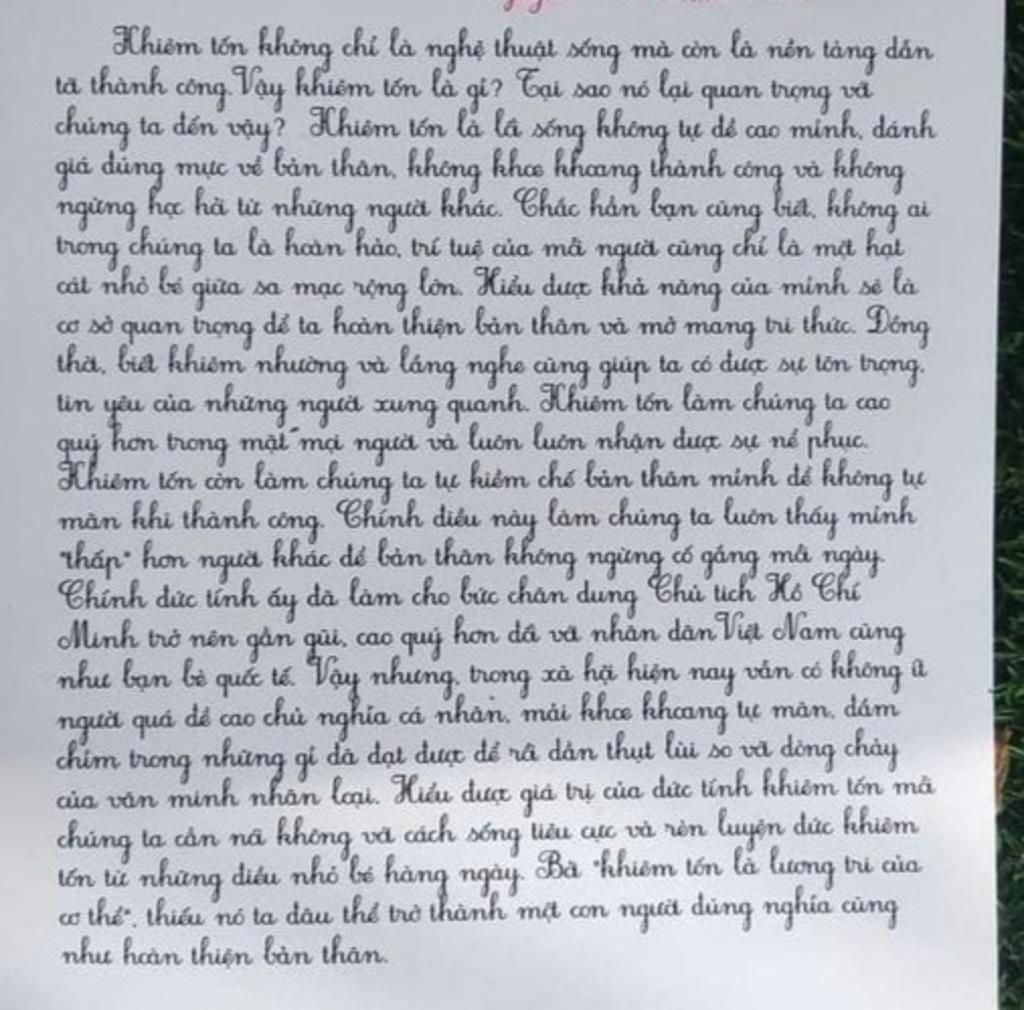 Khiêm tốn không chỉ là nghệ thuật sống mà còn là nền tảng dẫn
tới thành công. Vậy khiêm tốn là gì? Tại sao nó lại quan trọng với
chúng ta đến vậy? Khiêm tốn là lối sống không tự đề cao mình, đánh
giá đúng mực về bản thân, không khoe khoang thành công và không
ngừng học hỏi từ những người khác. Chắc hẳn bạn cũng biết, không ai
trong chúng ta là hoàn hảo, trí tuệ của mỗi người cũng chỉ là một hạt
cát nhỏ bé giữa sa mạc rộng lớn. Hiểu được khả năng của mình sẽ là
cơ sở quan trọng để ta hoàn thiện bản thân và mở mang tri thức. Đồng
thời, biết khiêm nhường và lắng nghe cũng giúp ta có được sự tôn trọng,
tin yêu của những người xung quanh. Khiêm tốn làm chúng ta cao
quý hơn trong mắt mọi người và luôn luôn nhận được sự nể phục.
Khiêm tốn còn làm chúng ta tự kiềm chế bản thân mình để không tự
mãn khi thành công. Chính điều này làm chúng ta luôn thấy mình
"thấp" hơn người khác để bản thân không ngừng cố gắng mỗi ngày.
Chính đức tính ấy đã làm cho bức chân dung Chủ tich Hồ Chí
Minh trở nên gần gũi, cao quý hơn đối với nhân dân Việt Nam cũng
như bạn bè quốc tế. Vậy nhưng, trong xã hội hiện nay vẫn có không ít
người quá đề cao chủ nghĩa cá nhân, mải khoe khoang tự mãn, đắm
chìm trong những gì đã đạt được để rồi dần thụt lùi so với dòng chảy
của văn minh nhân loại. Hiểu được giá trị của đức tính khiêm tốn mỗi
chúng ta cần nói không với cách sống tiêu cực và rèn luyện đức khiêm
tốn từ những điều nhỏ bé hàng ngày. Bởi "khiêm tốn là lương tri của
cơ thể", thiếu nó ta đâu thể trở thành một con người đúng nghĩa cũng
như hoàn thiện bản thân.